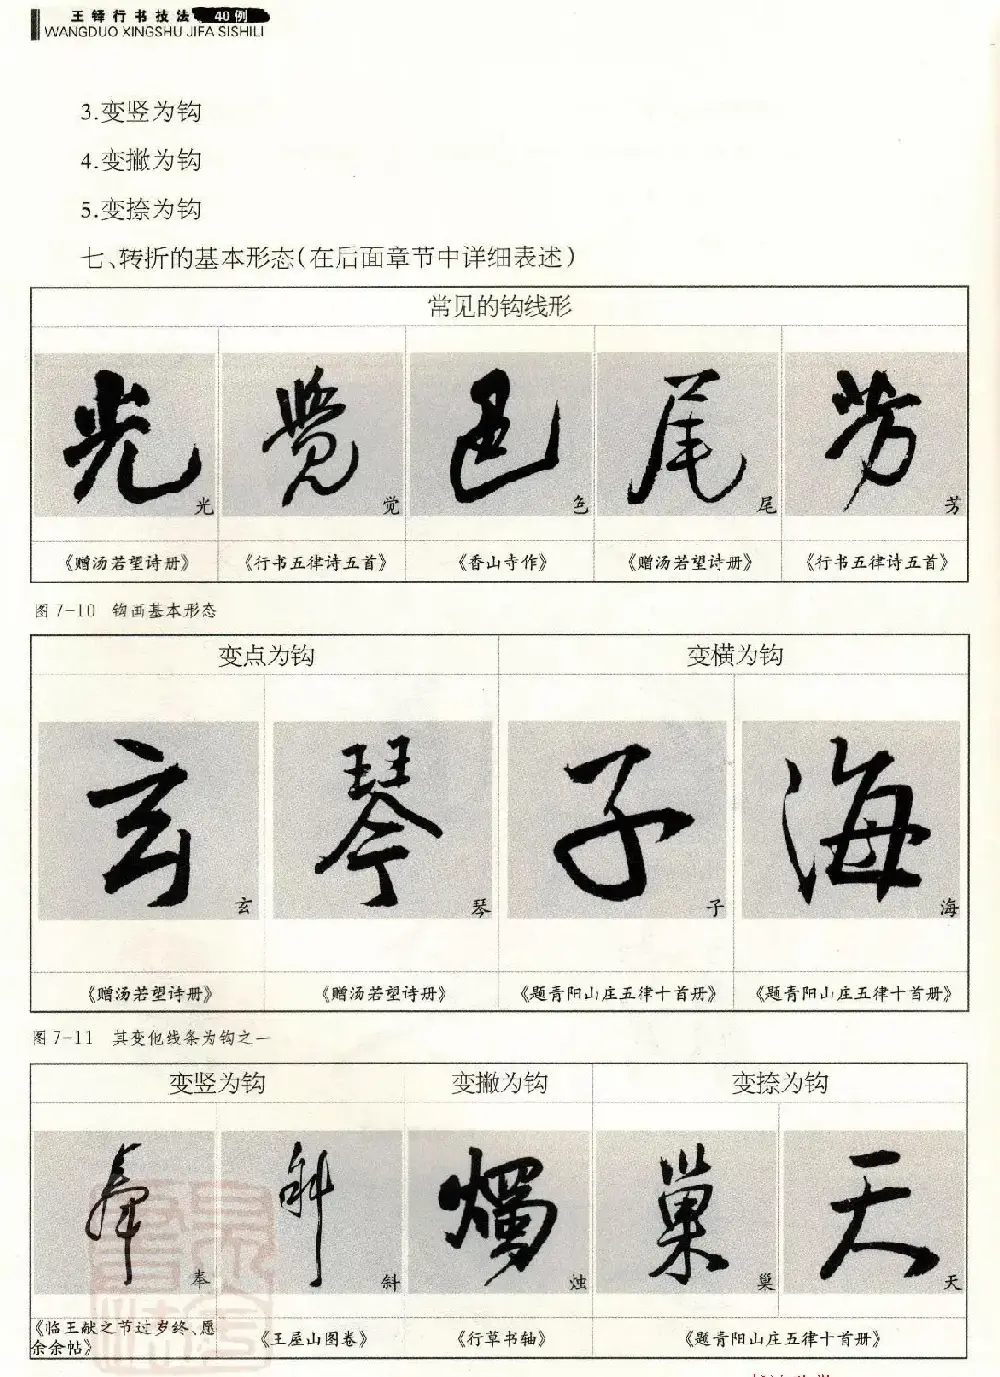 王铎行书技法 40例
WANGDUO XINGSHU JIFA SISHILI
3.变竖为钩
4.变撇为钩
5.变捺为钩
七、转折的基本形态(在后面章节中详细表述)
常见的钩线形
光 觉 色 尾 芳
《赠汤若望诗册》 《行书五律诗五首》 《香山寺作》 《赠汤若望诗册》 《行书五律诗五首》
图 7-10 钩画基本形态
变点为钩 变横为钩
玄 琴 子 海
《赠汤若望诗册》 《赠汤若望诗册》 《题青阳山庄五律十首册》 《题青阳山庄五律十首册》
图 7-11 其变他线条为钩之一
变竖为钩 变撇为钩 变捺为钩
奉 斜 烛 巢 天
《临王献之节过岁终、愿余余帖》 《王屋山图卷》 《行草书轴》 《题青阳山庄五律十首册》